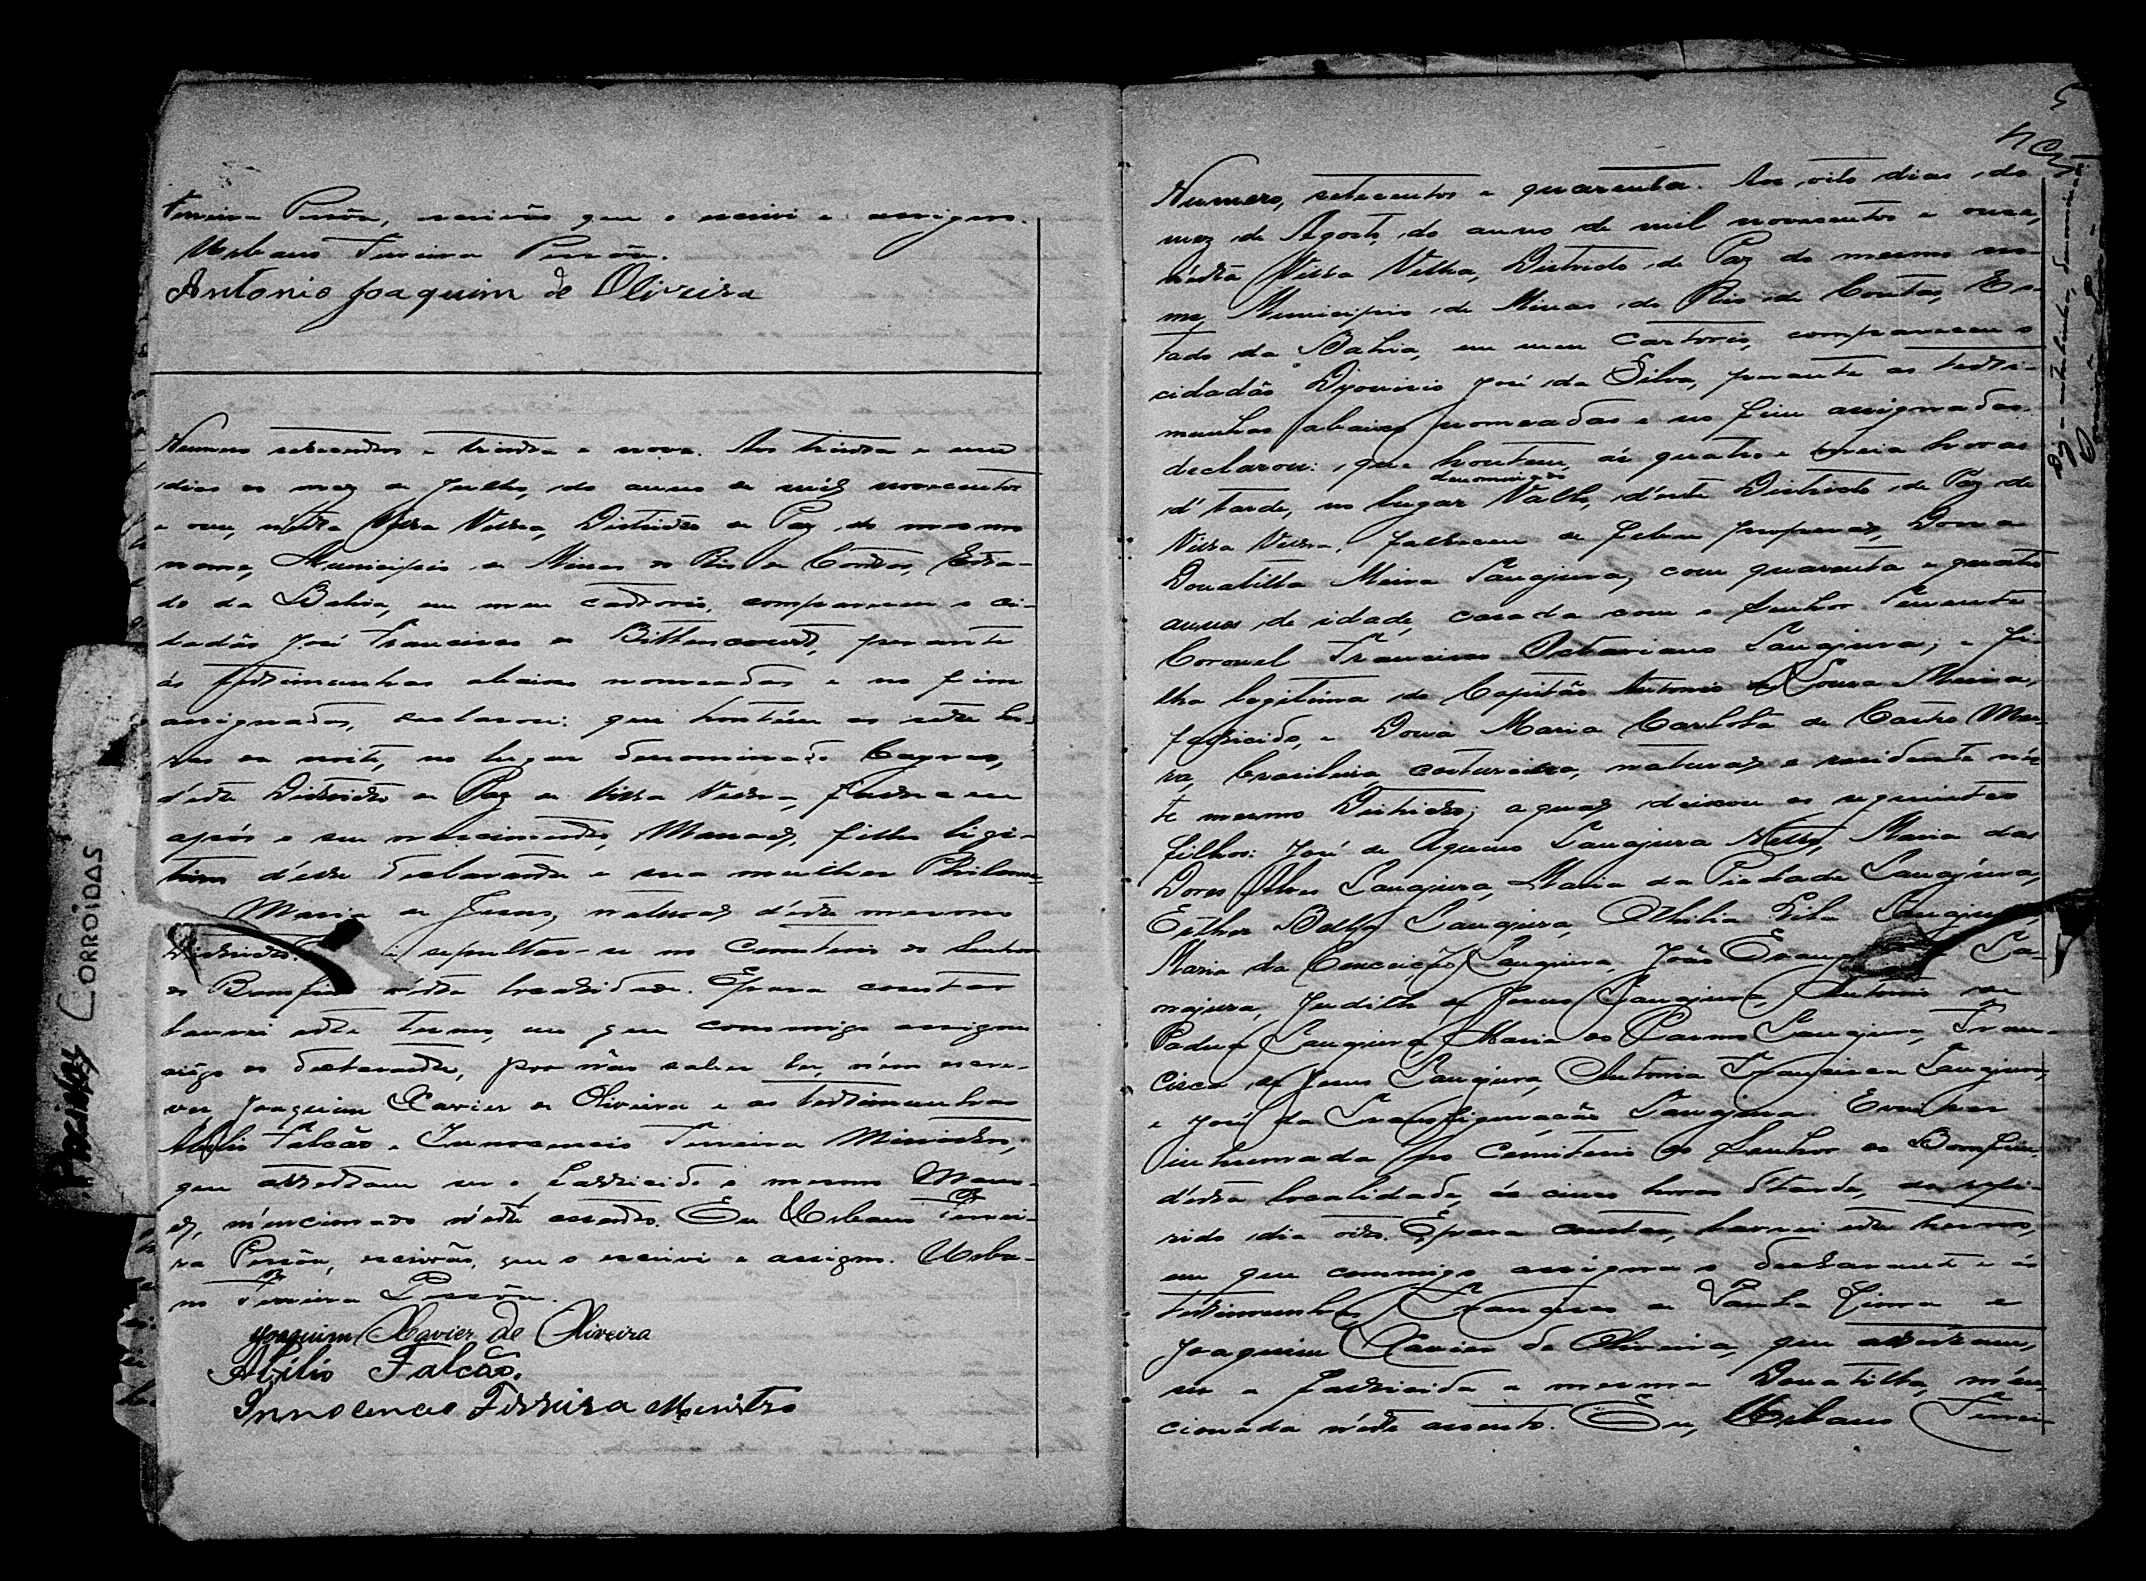 Ferreira Pessôa, escrivão que o escrevi e assigno.
Urbano Ferreira Pessôa.
Antonio Joaquim de Oliveira
Numero setecentos e trinta e nove. Aos trinta e um
dias do mez de Julho, do anno de mil novecentos
e onze, n'esta Villa Velha, Districto de Paz do mesmo
nome, Municipio de Minas do Rio de Contas, Esta-
do da Bahia, em meu cartorio, compareceu o ci-
dadão José Francisco de Bittencourt, perante
ás testimunhas abaixo nomeadas e no fim
assignadas, declarou: que hontem as sete ho-
ras da noite, no lugar denominado
d'este Districto de Paz de Villa Velha, falleceu
após o seu nascimento, Manoel, filho legi-
timo d'este declarante e sua mulher Philome-
Maria de Jesus, natural d'este mesmo
Districto. sepultar-se no Cemiterio do Senhor
do Bomfim n'esta localidade. E para constar
lavrei este termo, em que commigo assigna
rogo do declarante, por não saber ler, nem escre-
ver, Joaquim Xavier de Oliveira e as testimunhas
Abilio Falcão e Innocencio Ferreira Ministro,
que attestam ser o fallecido o mesmo Mano-
el, mencionado n'este assento. Eu Urbano Ferrei-
ra Pessôa, escrivão, que o escrevi e assigno. Urba-
no Ferreira Pessôa.
Joaquim Xavier de Oliveira
Abilio Falcão.
Innocencio Ferreira Ministro
PAGINAS CORROÍDAS
Numero, setecentos e quarenta. Aos oito dias do
mez de Agosto, do anno de mil novecentos e onze,
n'esta Villa Velha, Districto de Paz do mesmo no-
me, Municipio de Minas do Rio de Contas, Es-
tado da Bahia, em meu cartorio, compareceu o
cidadão Dyonisio José da Silva, perante as testi-
munhas abaixo nomeadas e no fim assignadas,
declarou: que hontem, ás quatro e meia horas
denominado
d'tarde, no lugar Valle, d'este Districto de Paz de
Villa Velha, falleceu de febre, Dona
Donatilla Meira Tanajura, com quarenta e quatro
annos de idade, casada com o Senhor Tenente
Coronel Francisco Octaviano Tanajura; e fi-
lha legitima do Capitão Antonio de Souza Meira,
fallecido, e Dona Maria Carlota de Castro Mei-
ra, brasileira, costureira, natural e residente nes-
te mesmo Districto; a qual deixou os seguintes
filhos: José de Aquino Tanajura Netto, Maria das
Dores Alves Tanajura, Maria da Piedade Tanajura,
Esther Tanajura, Othilia Tanajura,
Maria da Conceição Tanajura, João Ta-
najura, Judith de Jesus Tanajura, Antonio de
Padua Tanajura, Maria do Carmo Tanajura, Fran-
cisca de Jesus Tanajura, Antonia Francisca Tanajura,
e José da Transfiguração Tanajura. E vae ser
inhumada no Cemiterio do Senhor do Bomfim,
d'esta localidade, ás cinco horas d'tarde, do refe-
rido dia oito. E para constar, lavrei este termo,
em que commigo assigna o declarante e ás
testimunhas, de Paula Lima e
Joaquim Xavier de Oliveira, que attestam,
ser a fallecida a mesma Donatilla, men-
cionada n'este assento. Eu, Urbano Ferrei-